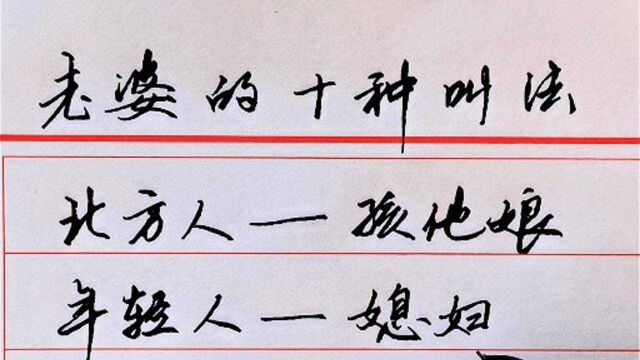 老婆的十种叫法
北方人—孩他娘
年轻人—媳妇